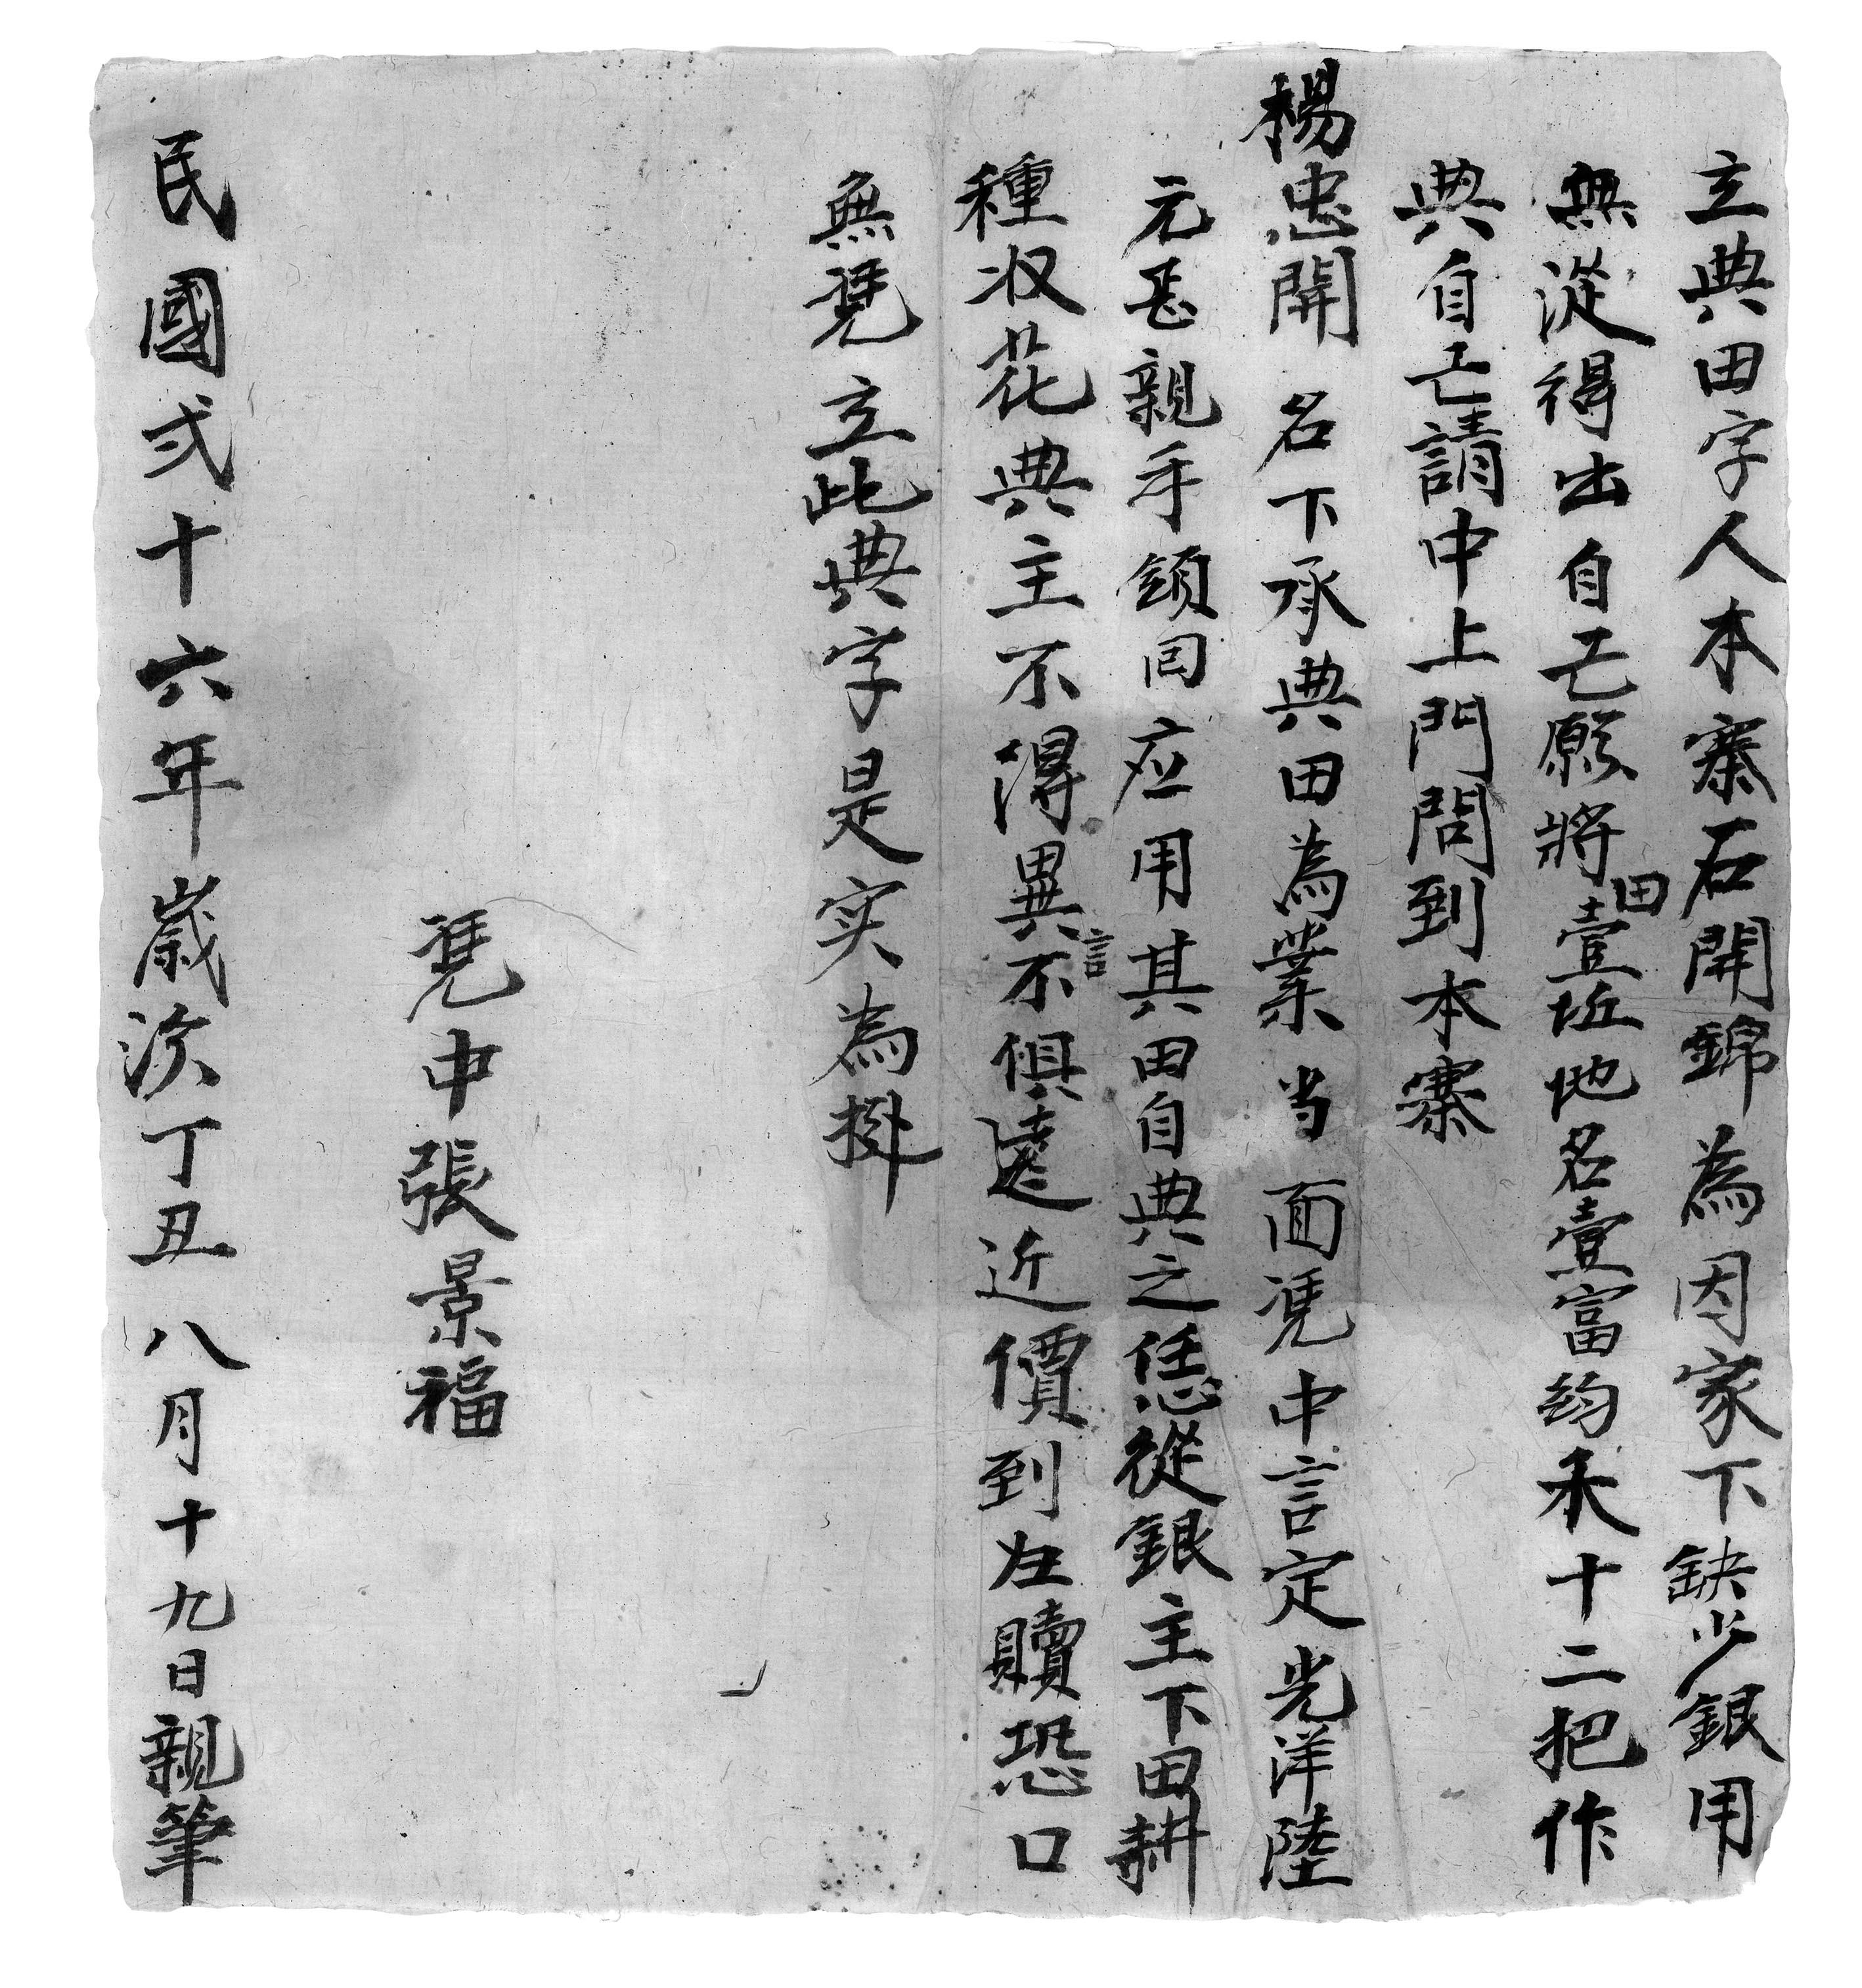 立典田字人本寨石開錦為因家下缺少銀用
無從得出自己願將田壹坵地名壹富約禾十二把作
典自己請中上門問到本寨
楊忠開名下承典田為業当面凭中言定光洋陸
元正親手領回应用其田自典之恁從銀主下田耕
種収花典主不得異言不俱遠近價到左贖恐口
無凭立此典字是实為㨿
凭中張景福
民國弍十六年歲次丁丑八月十九日親筆